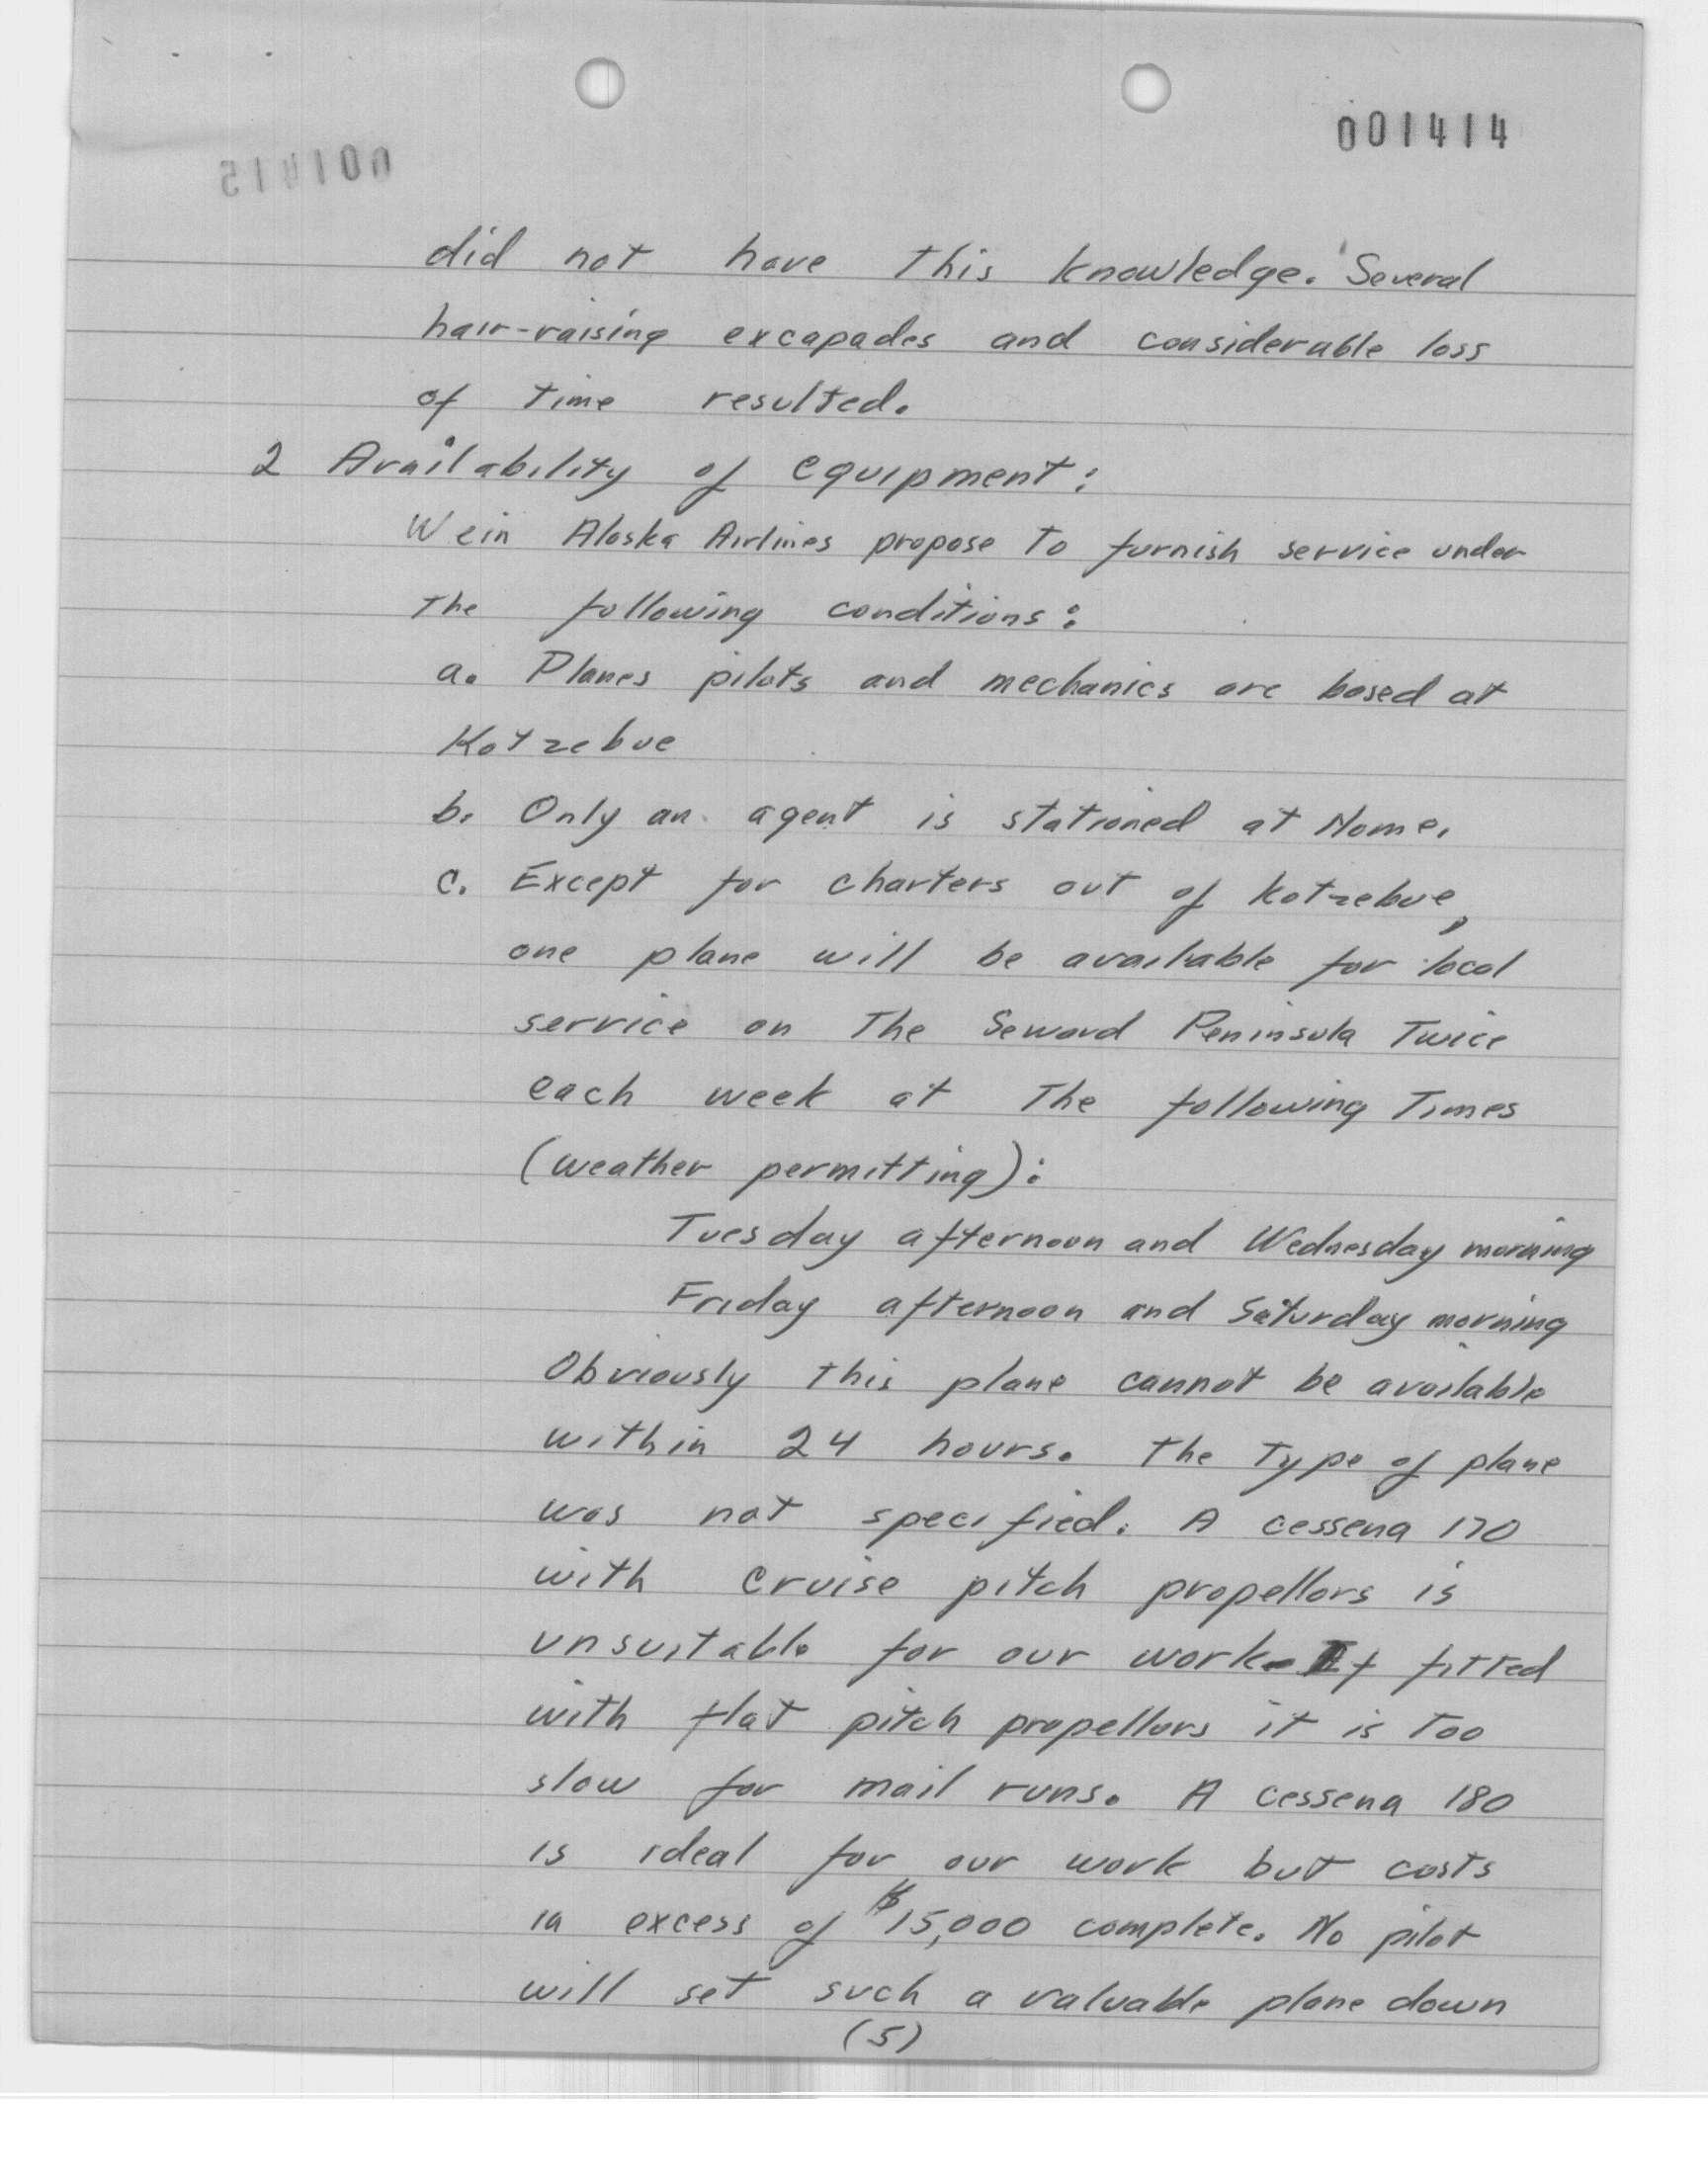 001414
001415
did not have this knowledge. Several
hair-raising excapades and considerable loss
of time resulted.
2 Availability of equipment:
Wein Alaska Airlines propose to furnish service under
the following conditions:
a. Planes pilots and mechanics are based at
Kotzebue
b. Only an agent is stationed at Nome.
c. Except for charters out of Kotzebue,
one plane will be available for local
service on the Seward Peninsula Twice
each week at The following Times
(weather permitting):
Tuesday afternoon and Wednesday morning
Friday afternoon and Saturday morning
Obviously this plane cannot be available
within 24 hours. The Type of plane
was not specified. A cessena 170
with cruise pitch propellors is
unsuitable for our work. If fitted
with flat pitch propellors it is Too
slow for mail runs. A cessena 180
is ideal for our work but costs
in excess of $15,000 complete. No pilot
will set such a valuable plane down
(5)